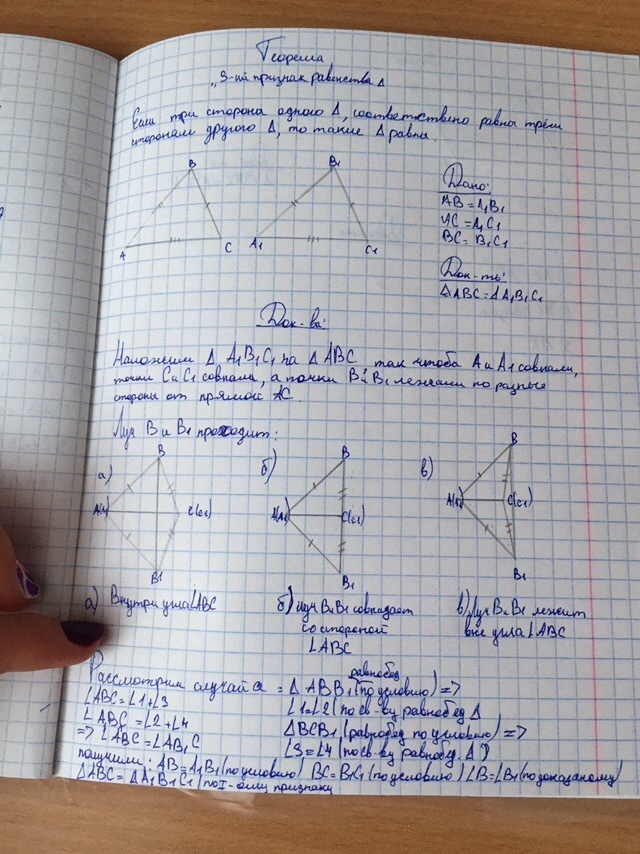 Теорема
„3-ий признак равенства Δ
Если три сторона одного Δ, соответствено равна трём
сторонам другого Δ, то такие Δ равны.
B
A
C
B₁
A₁
C₁
Дано:
AB = A₁B₁
AC = A₁C₁
BC = B₁C₁
Док-ть:
ΔABC = ΔA₁B₁C₁
Док-ва:
Наложим Δ A₁B₁C₁ на Δ ABC так чтоба A и A₁ совпали,
точки C и C₁ совпала, а точки B и B₁ лежали по разные
стороны от прямой AC.
Луч B и B₁ проходит:
а)
B
A(A₁)
C(C₁)
B1
б)
B
A(A₁)
C(C₁)
B₁
в)
B
A(A₁)
C(C₁)
B₁
а) Внутри угла ∠ABC
б) луч B и B₁ совпадает
со стороной
∠ABC
в) Луч B и B₁ лежит
вне угла ∠ABC
Рассмотрим случай а = Δ ABB₁ (равнобед по условию) =>
∠ABC = ∠1+∠3
∠1=∠2 (по св-ву равнобед Δ
∠ABC = ∠2+∠4
ΔBCB₁ (равнобед по условию) =>
=> ∠ABC = ∠AB₁C
∠3=∠4 (по св-ву равнобед. Δ)
получили: AB = A₁B₁ (по условию) BC = B₁C₁ (по условию) ∠B=∠B₁ (по доказаному)
ΔABC = ΔA₁B₁C₁ (по I-ому признаку